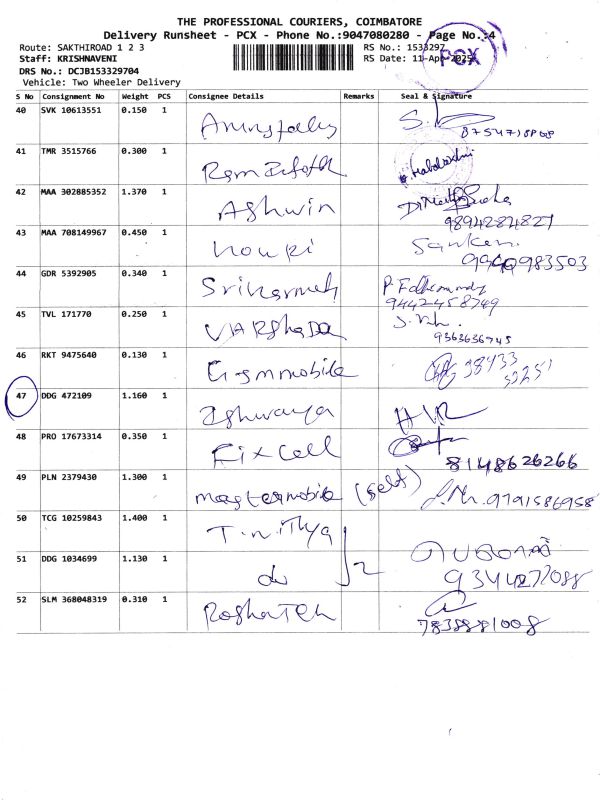 THE PROFESSIONAL COURIERS, COIMBATORE
Delivery Runsheet - PCX - Phone No.:9047080280 - Page No.:4
Route: SAKTHIROAD 1 2 3
RS No.: 1533297
Staff: KRISHNAVENI
RS Date: 11-Apr-2025
PCX
DRS No.: DCJB153329704
Vehicle: Two Wheeler Delivery
S No Consignment No Weight PCS Consignee Details Remarks Seal & Signature
40 SVK 10613551 0.150 1
41 TMR 3515766 0.300 1
42 MAA 302885352 1.370 1 Ashwin
9894284827
43 MAA 708149967 0.450 1
9940983503
44 GDR 5392905 0.340 1
9442458749
45 TVL 171770 0.250 1 VARSHADA
9363636745
46 RKT 9475640 0.130 1 G-smmobile
47 DDG 472109 1.160 1 Ishwarya
48 PRO 17673314 0.350 1 Fix cell
8148626266
49 PLN 2379430 1.300 1 (self)
9791586958
50 TCG 10259843 1.400 1 T. nithya
51 DDG 1034699 1.130 1 do 2
9344272088
52 SLM 368048319 0.310 1
7838881008